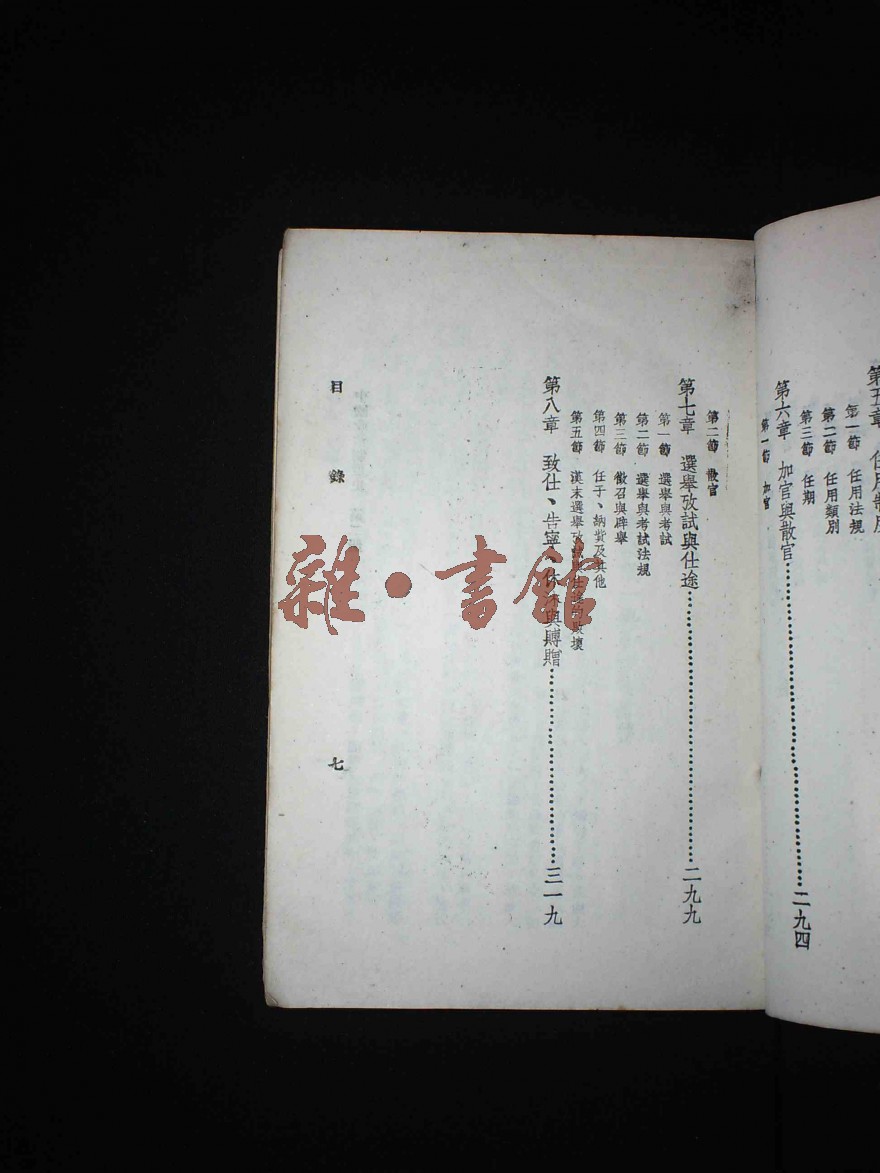 第五章 任用制度
第一節 任用法規
第二節 任用類別
第三節 任期
第六章 加官與散官……二九四
第一節 加官
第二節 散官
第七章 選舉攷試與仕途……二九九
第一節 選舉與考試
第二節 選舉與考試法規
第三節 徵召與辟舉
第四節 任子、納貲及其他
第五節 漢末選舉攷試與仕途的敗壞
第八章 致仕、告寧、休沐與賻贈……三一九
目錄
七
雜·書館